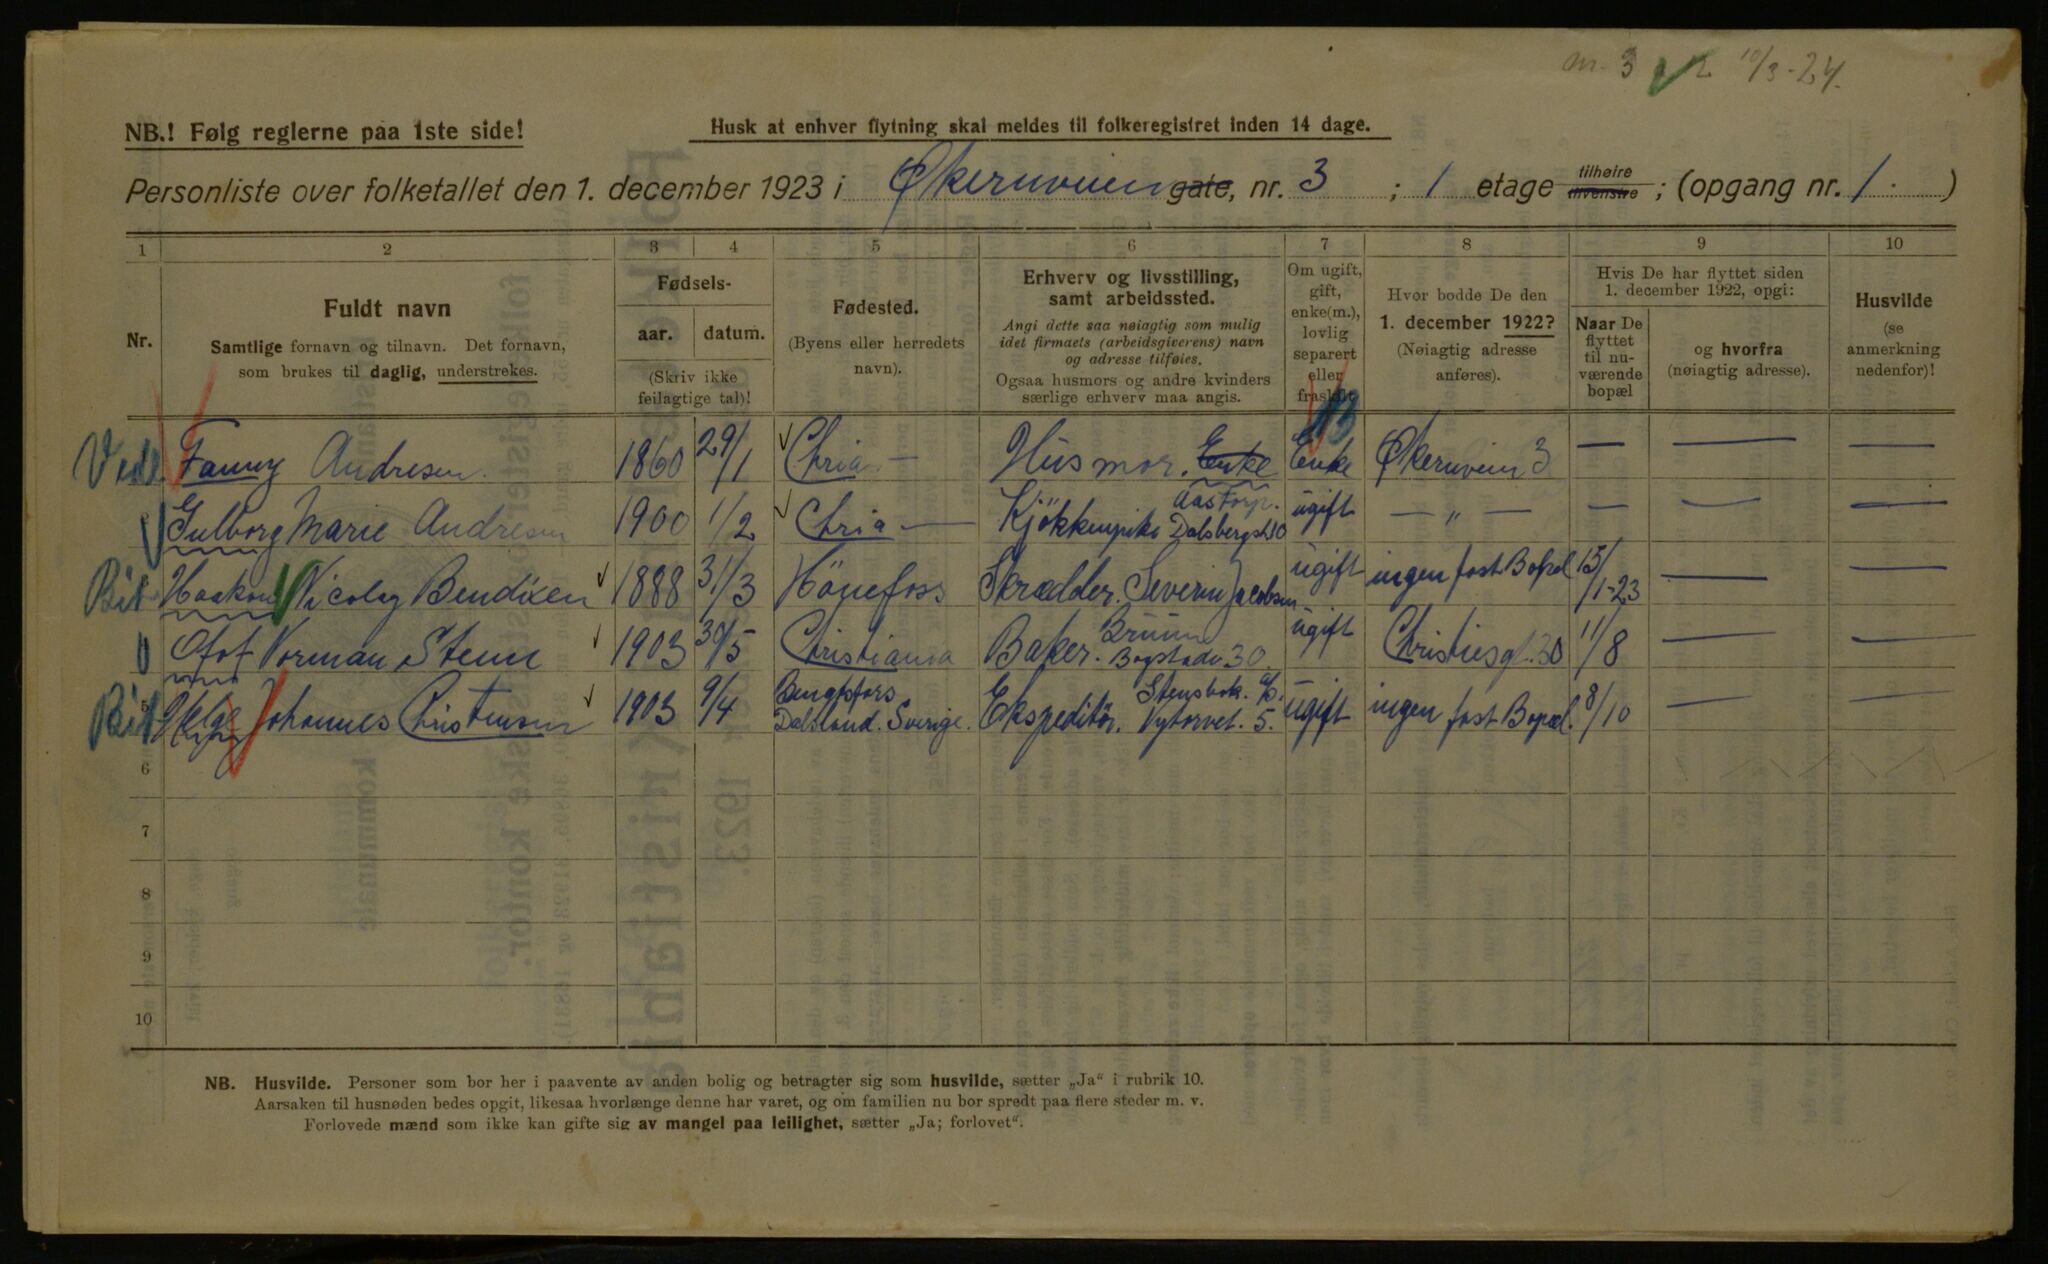 nr. 3 10/3-24.
NB.! Følg reglerne paa 1ste side!
Husk at enhver flytning skal meldes til folkeregistret inden 14 dage.
Personliste over folketallet den 1. december 1923 i Økernveien gate, nr. 3 ; 1 etage tilhøire tilvenstre ; (opgang nr. 1. )
1 2 3 4 5 6 7 8 9 10
Nr.
Fuldt navn
Samtlige fornavn og tilnavn. Det fornavn,
som brukes til daglig, understrekes.
Fødsels-
aar. datum.
(Skriv ikke
feilagtige tal)!
Fødested.
(Byens eller herredets
navn).
Erhverv og livsstilling,
samt arbeidssted.
Angi dette saa nøiagtig som mulig
idet firmaets (arbeidsgiverens) navn
og adresse tilføies.
Ogsaa husmors og andre kvinders
særlige erhverv maa angis.
Om ugift,
gift,
enke(m.),
lovlig
separert
eller
fraskilt
Hvor bodde De den
1. december 1922?
(Nøiagtig adresse
anføres).
Hvis De har flyttet siden
1. december 1922, opgi:
Naar De
flyttet
til nu-
værende
bopæl
og hvorfra
(nøiagtig adresse).
Husvilde
(se
anmerkning
nedenfor)!
Fanny Andresen. 1860 29/1 Chria — Husmor. Enke Enke Økernveien 3 — — —
Gulborg Marie Andresen 1900 1/2 Chria — Kjökkenpike Aastorp. Dalsbergst 10 ugift — „ — — — —
Bit Haakon Nicolay Bendixen 1888 31/3 Hönefoss Skrædder. Severin Jacobsen ugift ingen fast Bopel 15/1-23 — —
Olof Norman Stenn 1903 30/5 Christiania Baker. Bruun Bogstadv 30. ugift Christiesgt. 30 11/8 — —
Bit 5 Helge Johannes Christensen 1903 9/4 Bengtsfors Dalsland. Sverige. Ekspeditör. Stensbok. Nytorvet. 5. ugift ingen fast Bopæl. 8/10 — —
6
7
8
9
10
NB. Husvilde. Personer som bor her i paavente av anden bolig og betragter sig som husvilde, sætter „Ja“ i rubrik 10.
Aarsaken til husnøden bedes opgit, likesaa hvorlænge denne har varet, og om familien nu bor spredt paa flere steder m. v.
Forlovede mænd som ikke kan gifte sig av mangel paa leilighet, sætter „Ja; forlovet“.